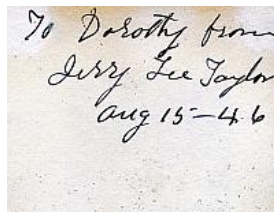 To Dorothy from
Jerry Lee Taylor
Aug 15-46